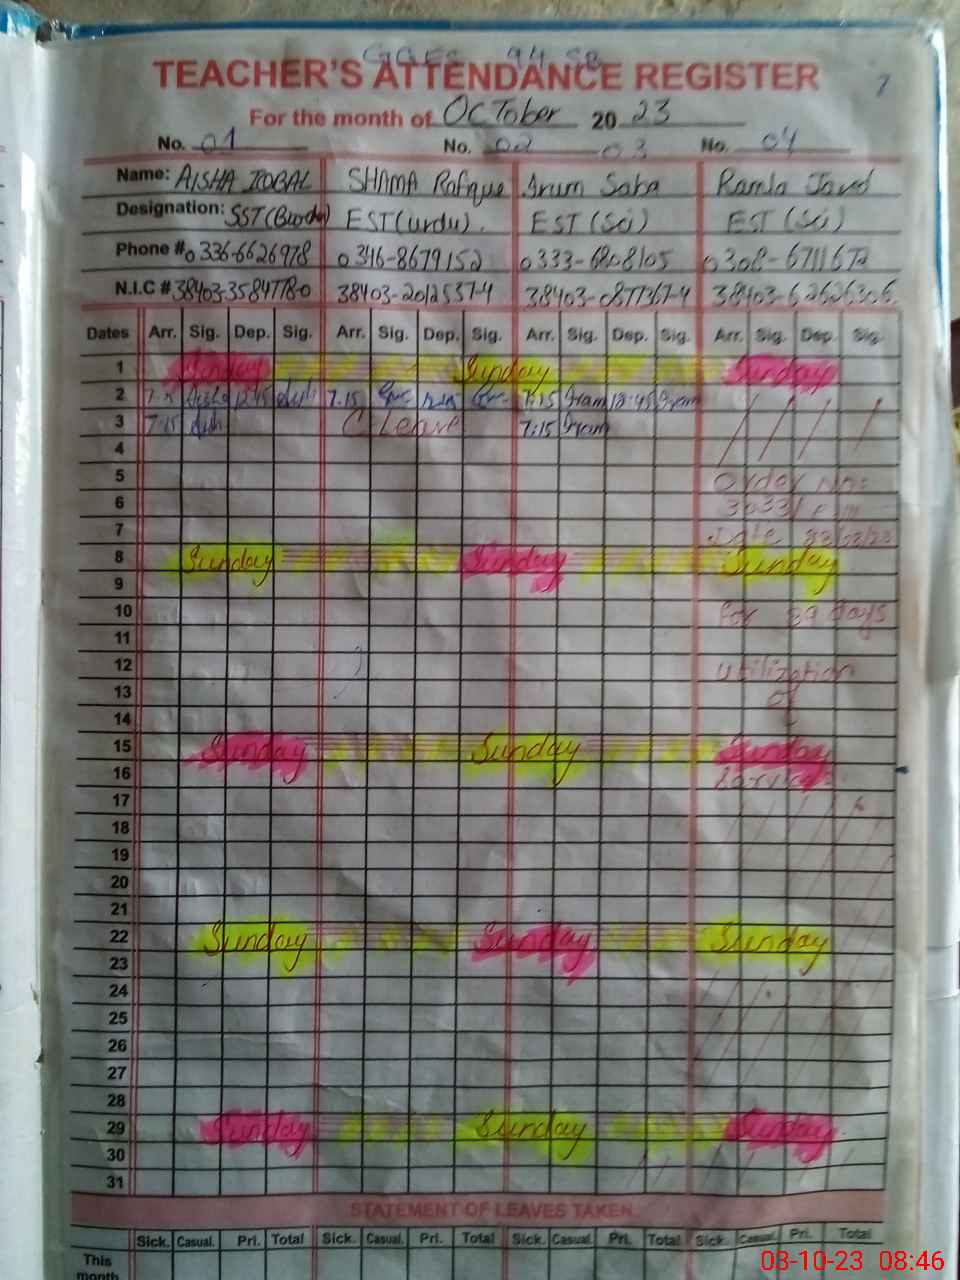 GGES 94 SB
TEACHER'S ATTENDANCE REGISTER
7
For the month of October 20 23
No. 01 No. 02 03 No. 04
Name: AISHA IQBAL SHAMA Rafique Irum Saba Ramla Javed
Designation: SST EST (urdu). EST (Sci) EST (Sci)
Phone # 0336-6626978 0346-8679152 0333-6808105 0308-6711672
N.I.C # 38403-3584778-0 38403-2012537-4 38403-0877367-4 38403-62626306
Dates Arr. Sig. Dep. Sig. Arr. Sig. Dep. Sig. Arr. Sig. Dep. Sig. Arr. Sig. Dep. Sig.
1 Sunday Sunday Sunday
2 Aisha 12:45 7.15 7:15 Iram 12:45 Iram
3 7:15 C-Leave 7:15 Iram
4
5 Order No:
6
7 Date
8 Sunday Sunday Sunday
9
10 For 89 days
11
12 utilization
13 of
14
15 Sunday Sunday Sunday
16 Services
17
18
19
20
21
22 Sunday Sunday Sunday
23
24
25
26
27
28
29 Sunday Sunday Sunday
30
31
STATEMENT OF LEAVES TAKEN
Sick. Casual. Pri. Total Sick. Casual. Pri. Total Sick. Casual. Pri. Total Sick. Casual. Pri. Total
This
month
03-10-23 08:46